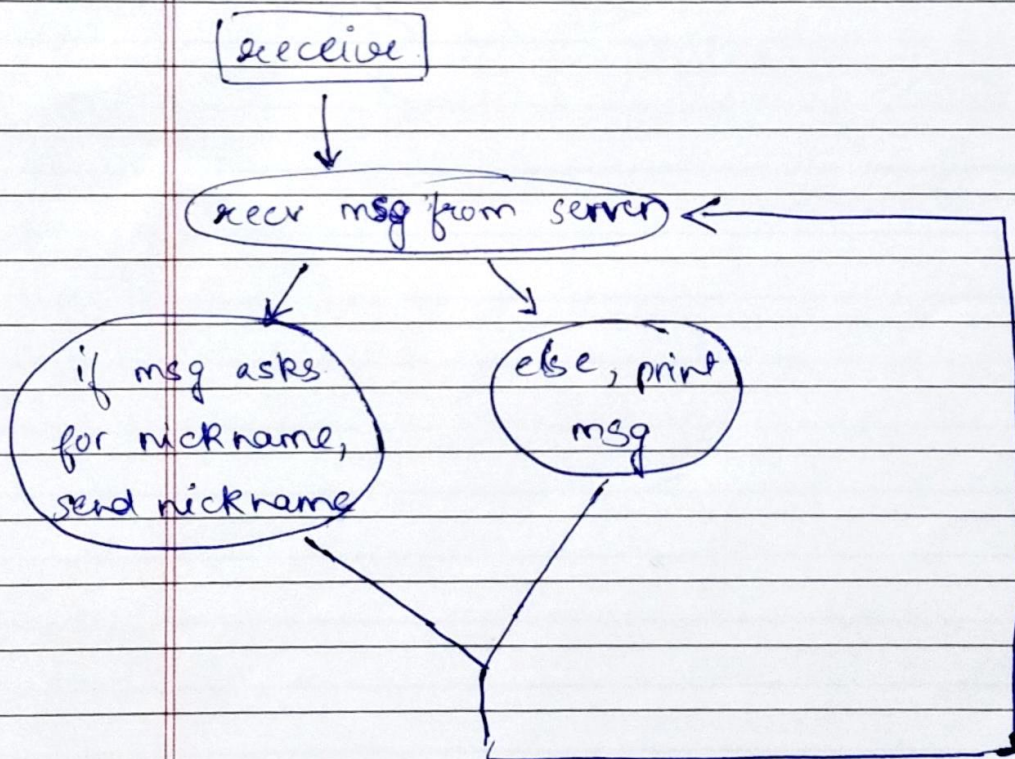 receive
recv msg from server
if msg asks
for nickname,
send nickname
else, print
msg